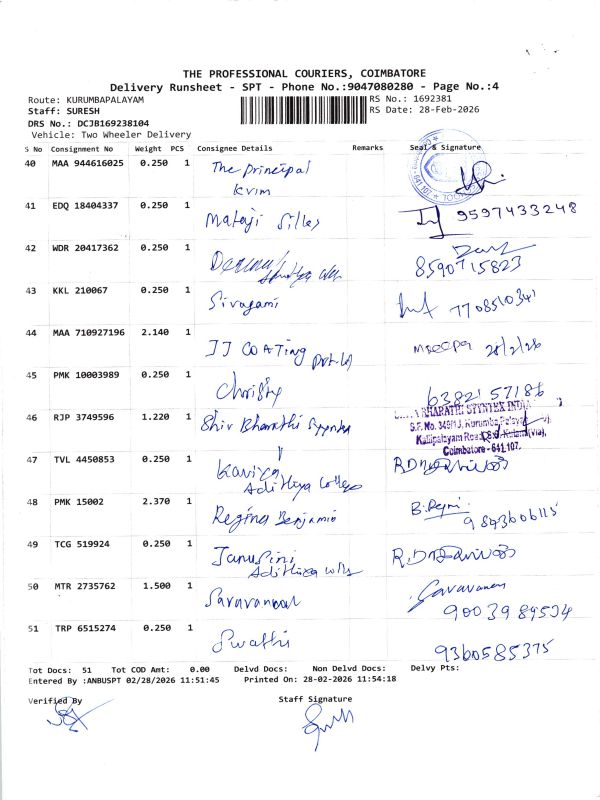 THE PROFESSIONAL COURIERS, COIMBATORE
Delivery Runsheet - SPT - Phone No.:9047080280 - Page No.:4
Route: KURUMBAPALAYAM
RS No.: 1692381
Staff: SURESH
RS Date: 28-Feb-2026
DRS No.: DCJB169238104
Vehicle: Two Wheeler Delivery
S No Consignment No Weight PCS Consignee Details Remarks Seal & Signature
40 MAA 944616025 0.250 1 The Principal
KVIM
41 EDQ 18404337 0.250 1 Mataji Silks 9597433248
42 WDR 20417362 0.250 1
8590715823
43 KKL 210067 0.250 1 Sivagami 7708510341
44 MAA 710927196 2.140 1 JJ COATing Pvt Ltd 28/2/26
45 PMK 10003989 0.250 1 Christy 6382157186
46 RJP 3749596 1.220 1 Shiv Bharathi
BHARATHI SYNTEX INDIA
S.F. No. 349/1J, Kurumbapalayam
Kallipalayam Road,
Coimbatore - 641 107.
47 TVL 4450853 0.250 1 Kaviya
Adithya College
48 PMK 15002 2.370 1 Regina Benjamin
49 TCG 519924 0.250 1
Adithya
50 MTR 2735762 1.500 1 Saravanan Saravanan
9003989534
51 TRP 6515274 0.250 1 Swathi 9360585375
Tot Docs: 51 Tot COD Amt: 0.00 Delvd Docs: Non Delvd Docs: Delvy Pts:
Entered By :ANBUSPT 02/28/2026 11:51:45 Printed On: 28-02-2026 11:54:18
Verified By Staff Signature